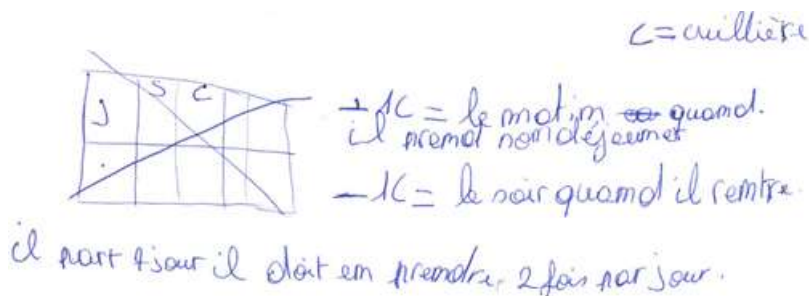 C = cuillière
J S C
- 1C = le matin quand
il prend son déjeuner
- 1C = le soir quand il rentre.
il part 7 jour il doit em prendre. 2 fois par jour.